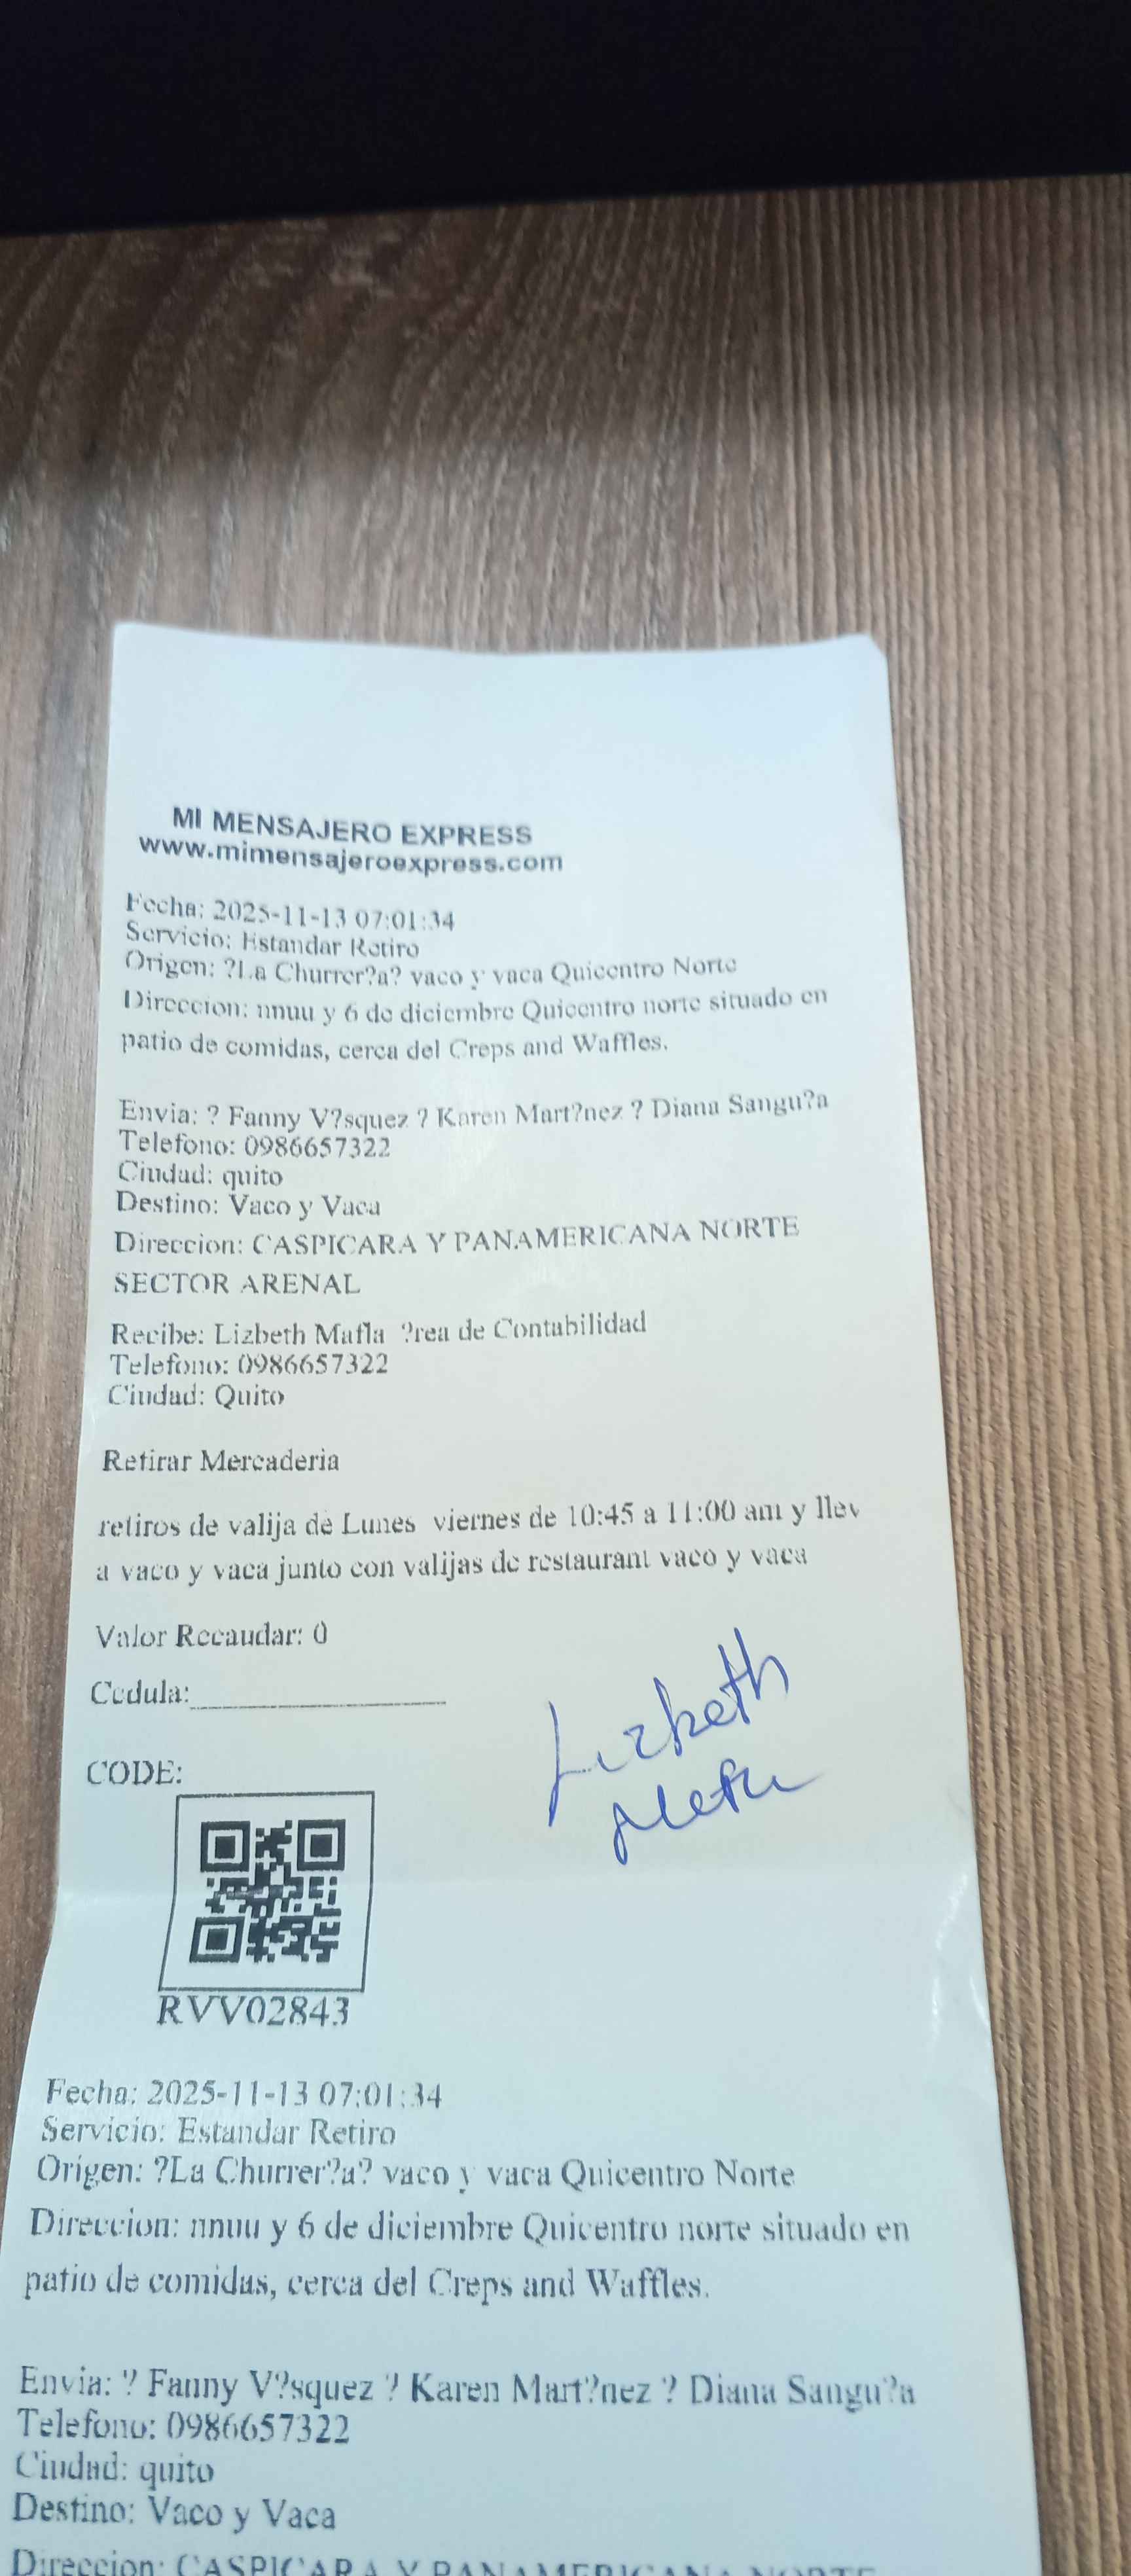 MI MENSAJERO EXPRESS
www.mimensajeroexpress.com
Fecha: 2025-11-13 07:01:34
Servicio: Estandar Retiro
Origen: ?La Churrer?a? vaco y vaca Quicentro Norte
Direccion: nnuu y 6 de diciembre Quicentro norte situado en
patio de comidas, cerca del Creps and Waffles.
Envia: ? Fanny V?squez ? Karen Mart?nez ? Diana Sangu?a
Telefono: 0986657322
Ciudad: quito
Destino: Vaco y Vaca
Direccion: CASPICARA Y PANAMERICANA NORTE
SECTOR ARENAL
Recibe: Lizbeth Mafla ?rea de Contabilidad
Telefono: 0986657322
Ciudad: Quito
Retirar Mercaderia
retiros de valija de Lunes viernes de 10:45 a 11:00 am y llev
a vaco y vaca junto con valijas de restaurant vaco y vaca
Valor Recaudar: 0
Cedula:
Lizbeth
CODE:
RVV02843
Fecha: 2025-11-13 07:01:34
Servicio: Estandar Retiro
Origen: ?La Churrer?a? vaco y vaca Quicentro Norte
Direccion: nnuu y 6 de diciembre Quicentro norte situado en
patio de comidas, cerca del Creps and Waffles.
Envia: ? Fanny V?squez ? Karen Mart?nez ? Diana Sangu?a
Telefono: 0986657322
Ciudad: quito
Destino: Vaco y Vaca
Direccion: CASPICARA Y PANAMERICANA NORTE